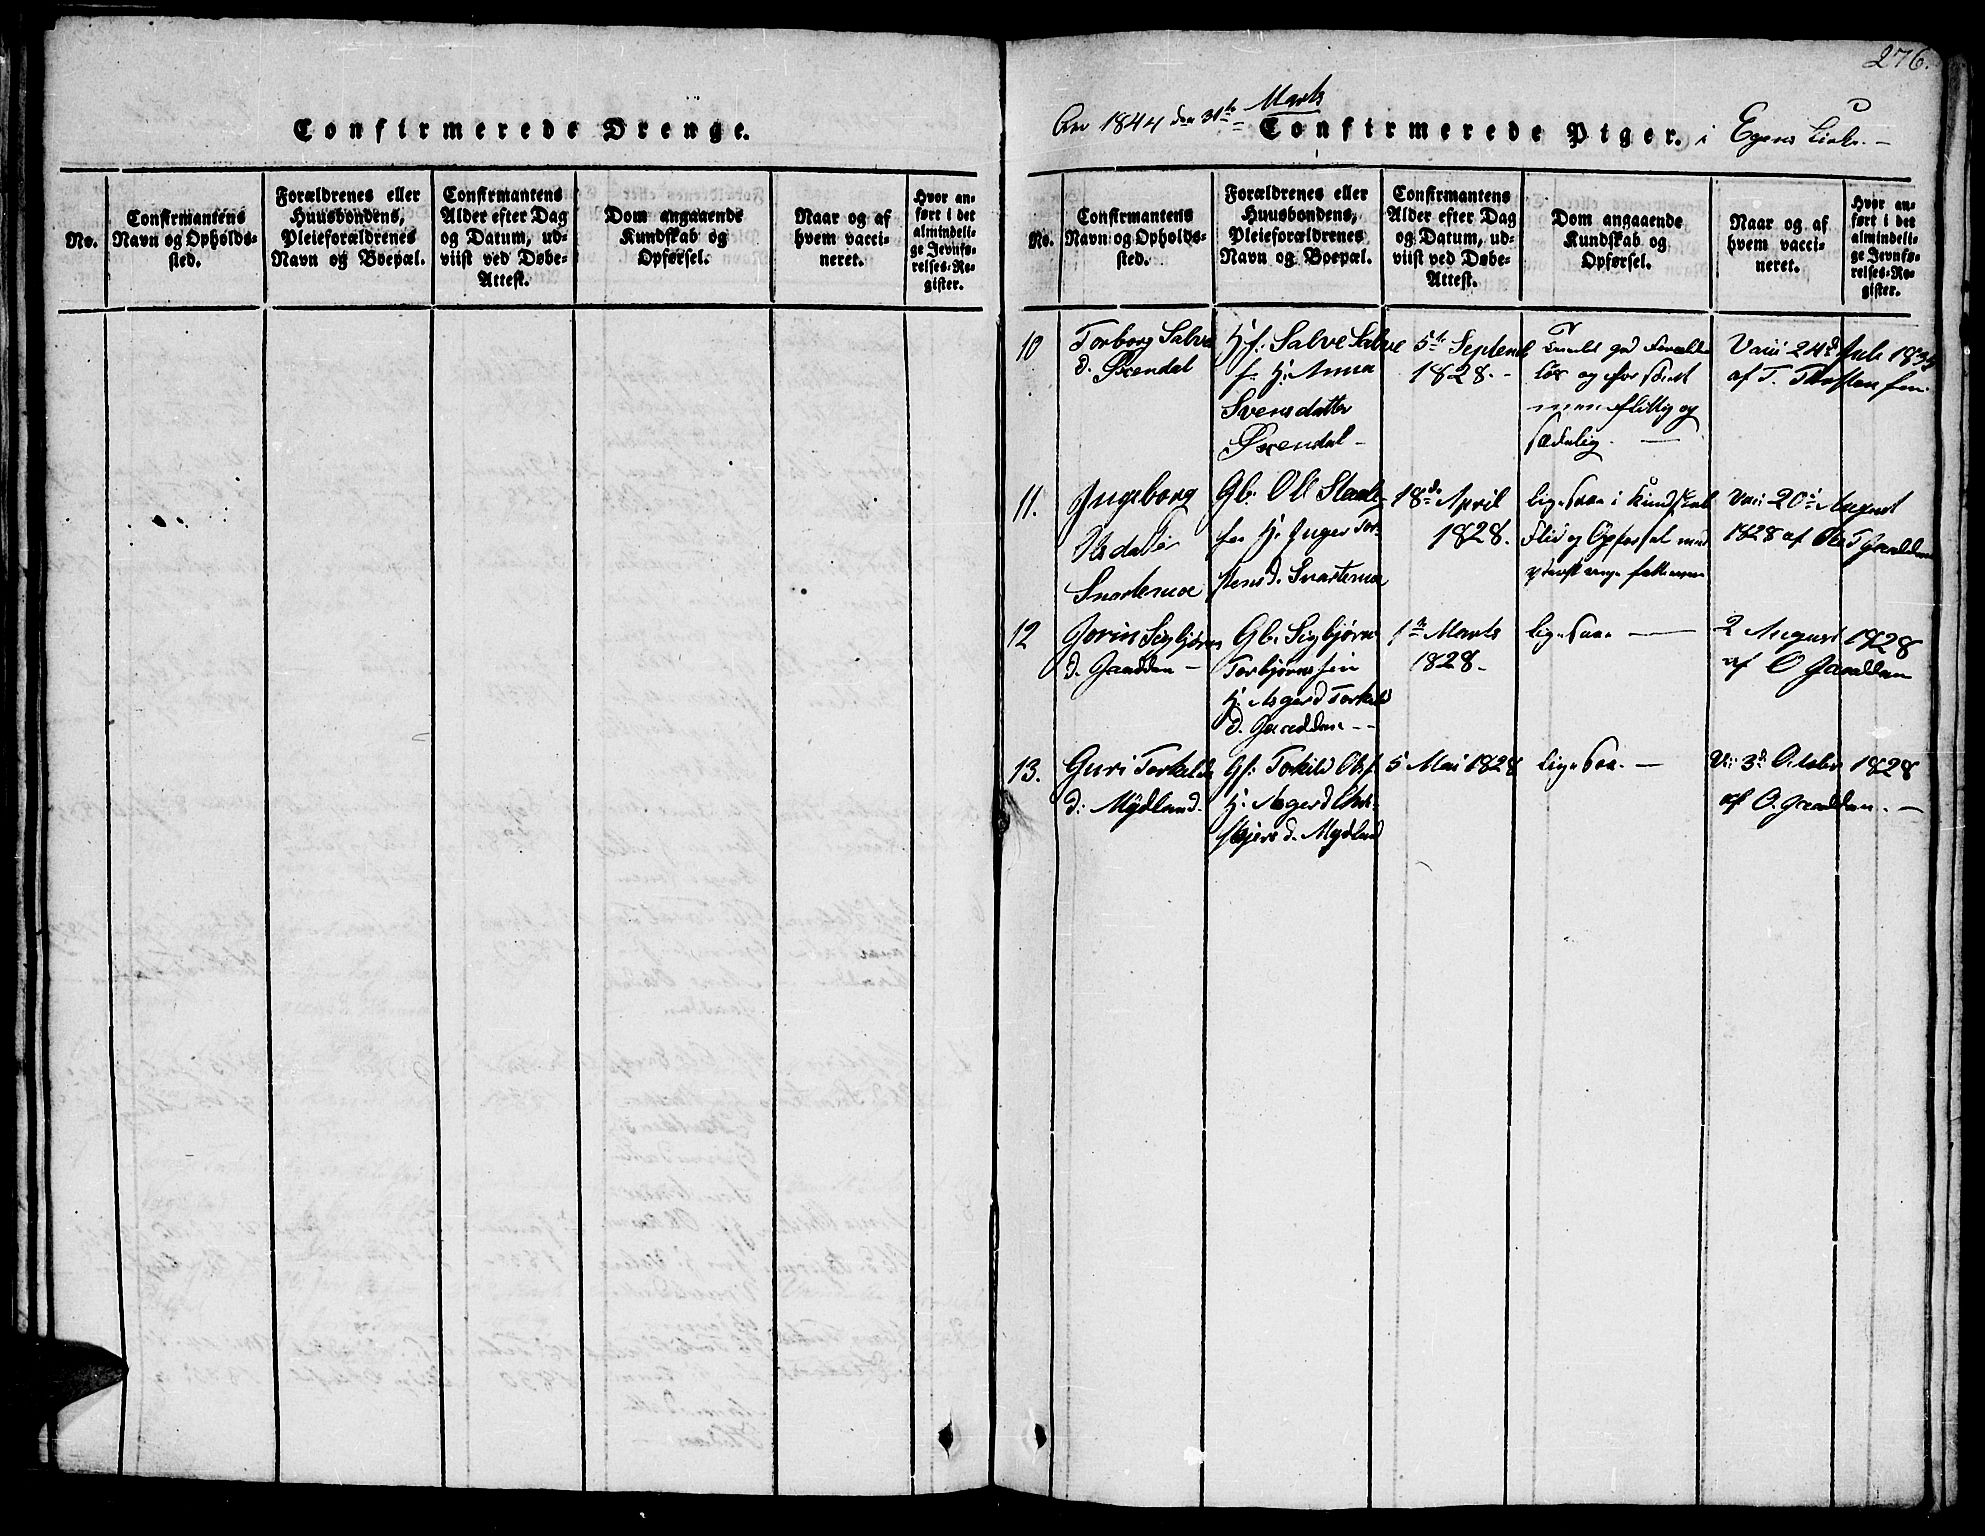 Confirmerede Drenge.
No.
Confirmantens
Navn og Opholds-
sted.
Forældrenes eller
Huusbondens,
Pleieforældrenes
Navn og Boepæl.
Confirmantens
Alder efter Dag
og Datum, ud-
viist ved Døbe-
Attest.
Dom angaaende
Kundskab og
Opførsel.
Naar og af
hvem vacci-
neret.
Hvor an-
ført i det
almindeli-
ge Jevnfø-
relses-Re-
gister.
276.
1844 den 31te Marts
Confirmerede Piger. i
No.
Confirmantens
Navn og Opholds-
sted.
Forældrenes eller
Huusbondens,
Pleieforældrenes
Navn og Boepæl.
Confirmantens
Alder efter Dag
og Datum, ud-
viist ved Døbe-
Attest.
Dom angaaende
Kundskab og
Opførsel.
Naar og af
hvem vacci-
neret.
Hvor an-
ført i det
almindeli-
ge Jevnfø-
relses-Re-
gister.
10
Torborg Salve
d. Øxendal
Salve Salve
f. H: Anna
Svensdatter
Øxendal -
5te Septemb
1828. -
og for
flittig og
sædelig. -
Vacc 24d Juli
af T.
11.
Ingeborg
Olsdatter
Snartemoe
Gb: Ole Staale-
H: Inger Tor-
stensd. Snartemoe
18de April
1828.
ligesaa i Kundskab
Flid og Opførsel
Vacc 20d August
1828 af Ole T Gaadden
12
Jorin Sigbjørns
d. Gaadden -
Gb: Sigbjørn
Torbjørnsen
H: Asgerd Torkild
d. Gaadden - -
1te Marts
1828 -
ligesaa -
2 August 1828
af O Gaadden
13.
Guri Torkilds
d: Mydland.
Gf: Torkild Olsf
H: Asgerd
d. Mydland
5 Mai 1828
ligesaa. -
3d October 1828
af O. Gaadden. -